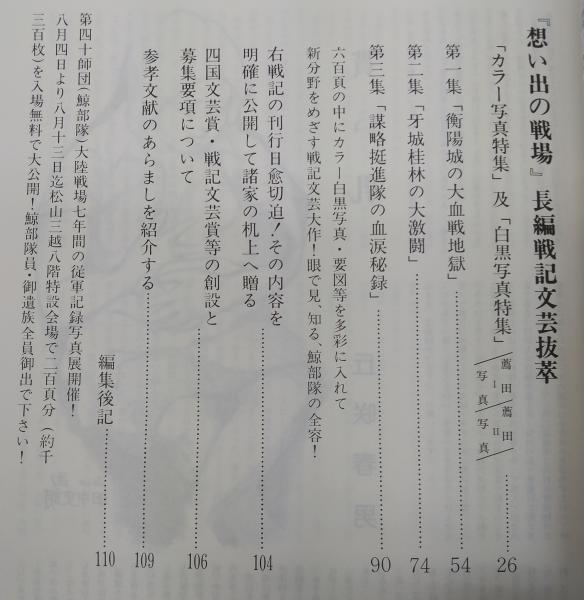 『想い出の戦場』長編戦記文芸抜萃
「カラー写真特集」及「白黒写真特集」
蔦田Ⅰ写真
蔦田Ⅱ写真
26
第一集「衡陽城の大血戦地獄」 54
第二集「牙城桂林の大激闘」 74
第三集「謀略挺進隊の血涙秘録」 90
六百頁の中にカラー白黒写真・要図等を多彩に入れて
新分野をめざす戦記文芸大作！眼で見、知る、鯨部隊の全容！
右戦記の刊行日愈切迫！その内容を
明確に公開して諸家の机上へ贈る 104
四国文芸賞・戦記文芸賞等の創設と
募集要項について 106
参孝文献のあらましを紹介する 109
編集後記 110
第四十師団（鯨部隊）大陸戦場七年間の従軍記録写真展開催！
八月四日より八月十三日迄松山三越八階特設会場で二百頁分（約千
三百枚）を入場無料で大公開！鯨部隊員・御遺族全員御出で下さい！